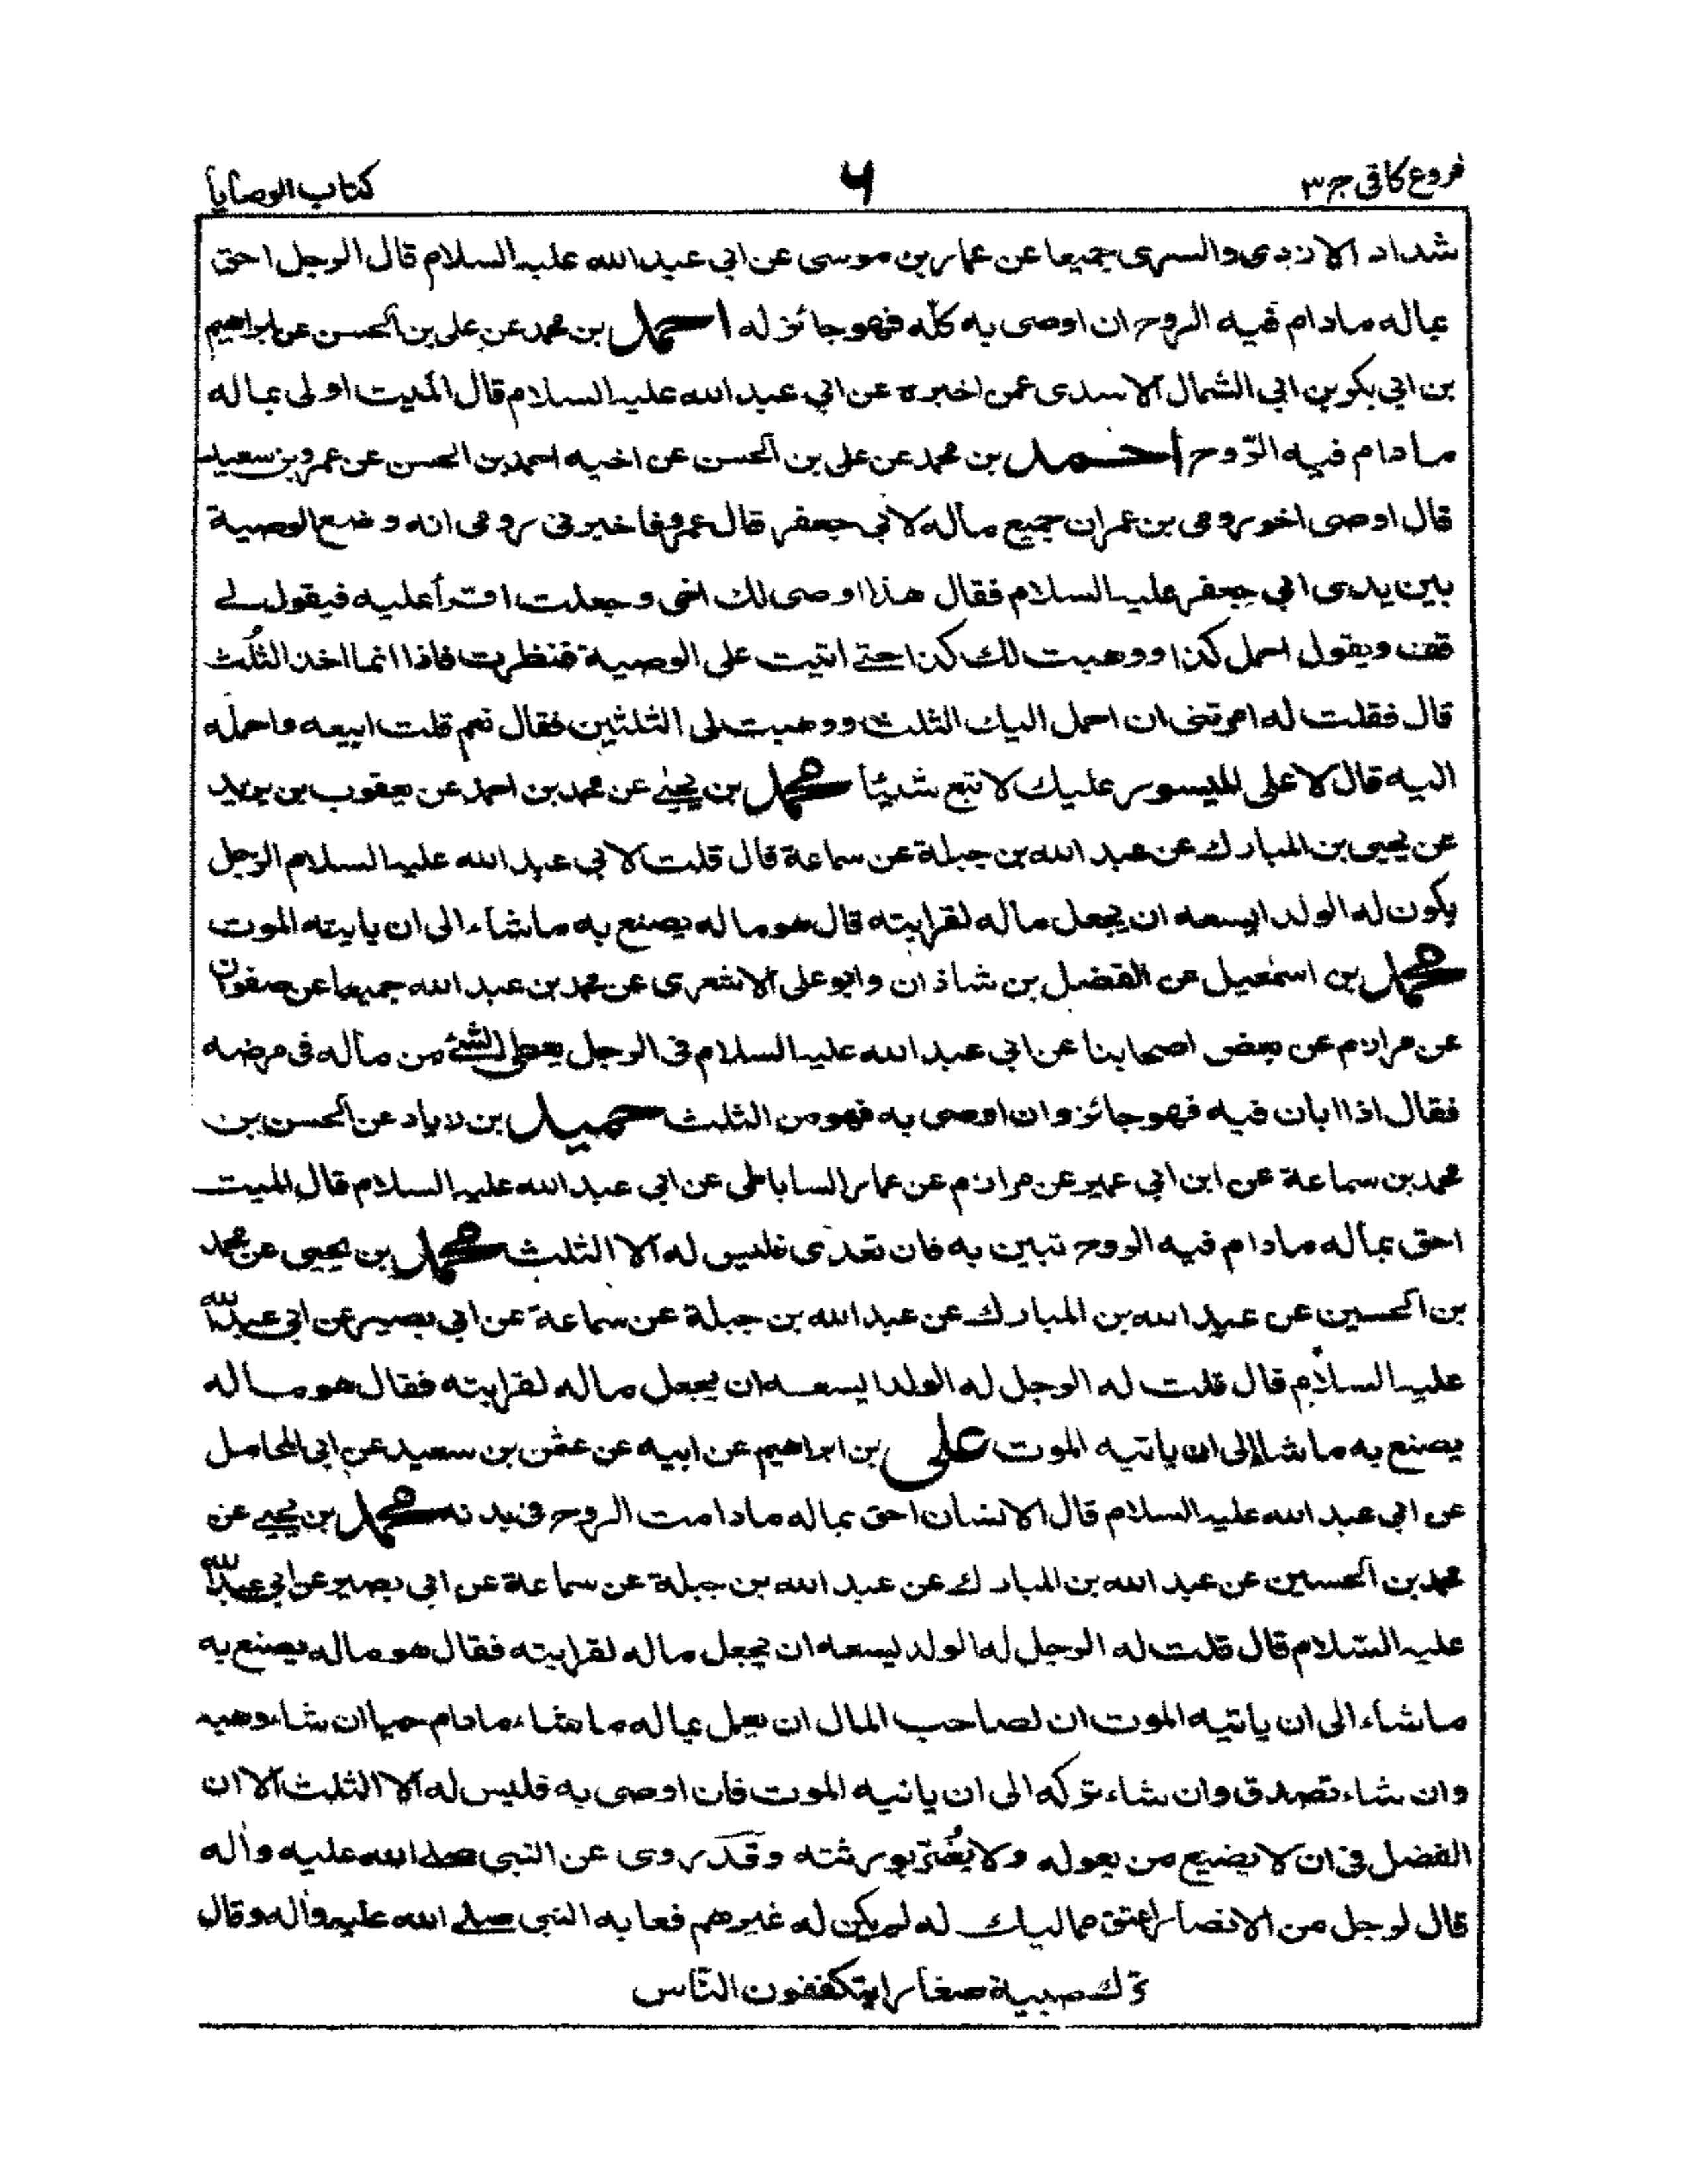 فروع كافى ج ٣
٦
كتاب الوصايا
شداد الازدى والسرى جميعا عن عمار بن موسى عن ابي عبد الله عليه السلام قال الرجل احق
بماله مادام فيه الروح ان اوصى به كلّه فهو جائز له احمد بن محمد عن على بن الحسن عن ابراهيم
بن ابي بكر بن ابي الشمال الاسدى عمن اخبره عن ابي عبد الله عليه السلام قال الميت اولى بماله
مادام فيه الرّوح احمد بن محمد عن على بن الحسن عن اخيه احمد بن الحسن عن عمرو بن سعيد
قال اوصى اخو رومى بن عمران جميع ماله لابي جعفر قال عمرو فاخبرنى رومى انه وضع الوصية
بين يدى ابي جعفر عليه السلام فقال هذا اوصى لك اخى وجعلت اقرأ عليه فيقول لے
قف ويقول احمل كذا ووهبت لك كذا حتے اتيت على الوصية فنظرت فاذا انما اخذ الثلُث
قال فقلت له امرتنى ان احمل اليك الثلث ووهبت لى الثلثين فقال نعم قلت ابيعه واحمله
اليه قال لا على الميسور عليك لا تبع شيئا محمد بن يحيے عن محمد بن احمد عن يعقوب بن يزيد
عن يحيى بن المبارك عن عبد الله بن جبلة عن سماعة قال قلت لابي عبد الله عليه السلام الرجل
يكون له الولد ايسعه ان يجعل ماله لقرابته قال هو ماله يصنع به ماشاء الى ان ياتيه الموت
محمد بن اسمعيل عن الفضل بن شاذان وابو على الاشعرى عن محمد بن عبد الله جميعا عن صفوان
عن مرازم عن بعض اصحابنا عن ابي عبد الله عليه السلام فى الرجل يعطى الشئ من ماله فى مرضه
فقال اذا ابان فيه فهو جائز وان اوصى به فهو من الثلث حميد بن زياد عن الحسن بن
محمد بن سماعة عن ابن ابي عمير عن مرازم عن عمار الساباطى عن ابي عبد الله عليه السلام قال الميت
احق بماله مادام فيه الروح تبين به فان تعدى فليس له الا الثلث محمد بن يحيى عن محمد
بن الحسين عن عبد الله بن المبارك عن عبد الله بن جبلة عن سماعة عن ابي بصير عن ابي عبد الله
عليه السلام قال قلت له الرجل له الولد ايسعه ان يجعل ماله لقرابته فقال هو ماله
يصنع به ما شاء الى ان ياتيه الموت على بن ابراهيم عن ابيه عن عثمن بن سعيد عن ابى المحامل
عن ابي عبد الله عليه السلام قال الانسان احق بماله مادامت الروح فى بدنه محمد بن يحيے عن
محمد بن الحسين عن عبد الله بن المبارك عن عبد الله بن جبلة عن سماعة عن ابي بصير عن ابي عبد الله
عليه السّلام قال قلت له الرجل له الولد ليسعه ان يجعل ماله لقرابته فقال هو ماله يصنع به
ما شاء الى ان ياتيه الموت ان لصاحب المال ان يعمل بماله ما شاء مادام حيا ان شاء وهبه
وان شاء تصدق وان شاء تركه الى ان ياتيه الموت فان اوصى به فليس له الا الثلث الا ان
الفضل فى ان لا يضيع من يعوله ولا يضر بورثته وقد روى عن النبي صلے الله عليه واله
قال لرجل من الانصار اعتق مماليك له لم يكن له غيرهم فعابه النبى صلے الله عليه واله وقال
ترك صبية صغارا يتكففون النّاس